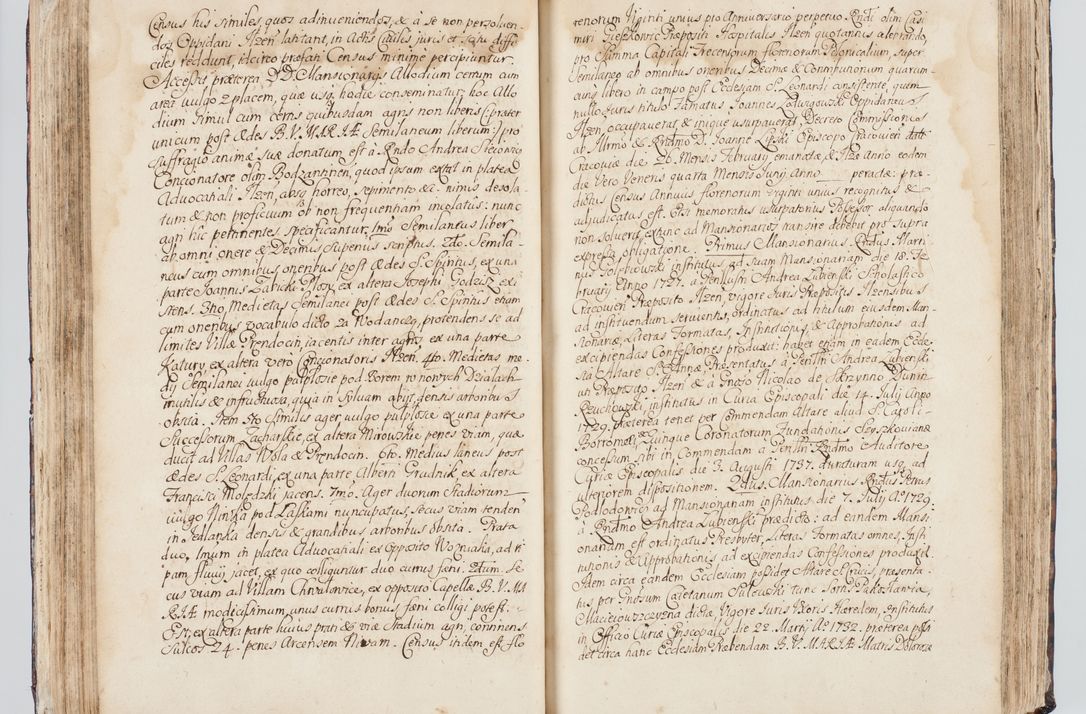 Census his similes, quos adinveniendos, & à se non persolven-
dos Oppidani Ilzen: latitant, in Actis Civiles juris et
ciles reddunt, idcirco præfati Census minime percipiuntur.
Accessit præterea DD. Mansionarijs Allodium certum cum
area vulgo z placem, quæ usq hodie conseminatur hoc Allo
dium simul cum certis quibusdam agris non liberis (præter
unicum post ædes B. V. MARIÆ Semilaneum liberum:) pro
suffragio animæ suæ donatum est à Rndo Andrea
Concionatore olim Bodzantinen, quod ipsum extat in platea
Advocatiali Ilzen, absq horreo, sepimento &c. nimis desola
tum & non proficuum ob non frequentiam incolatus: nunc
agri huc pertinentes specificantur. Imo Semilaneus liber
ab omni onere & Decimis superius scriptus. 2do. Semila-
neus cum omnibus oneribus post ædes S. Spiritus, ex una
parte Joannis Babicki ex altera Josephi exi-
stens. 3tio. Medietas Semilanei post ædes S. Spiritus etiam
cum oneribus vocabulo dicto za Wodanczą, protendens se ad
limites Villæ Prendocin, jacentis inter agros ex una parte
Katury, ex altera vero Concionatoris Ilzen. 4to. Medietas me-
dij Semilanei vulgo pulplosie pod Borem w nowych Dzialach
inutilis & infructuosa, quia in Sylvam abijt densis arboribus
obsita. Item 5to Similis ager vulgo pulplosie ex una parte
Successorum Zacharskie, ex altera Morowskie penes viam, quæ
ducit ad Villas Wola & Prendocin. 6to. Medius lineus post
ædes S. Leonardi, ex una parte Alberti Grudnik, ex altera
Francisci Molędzki jacens. 7mo. Ager duorum Stadiorum
vulgo Niwka pod Łaskami nuncupatus, secus viam tenden
in densis & grandibus arboribus obsita. Prata
duo. Imum in platea Advocatiali ex opposito Woznialia, ad ri
pam fluvij jacet, ex quo colliguntur duo currus fæni. 2dum. Se
cus viam ad Villam Chwalowice, ex opposito Capellæ B. V. MA
RIÆ modicissimum, unus currus bonus fæni colligi potest.
Est, ex altera parte hujus prati & viæ Stadium agri, continens
Sulcos 24. penes Arcensem Niwam. Census in idem est flo
renorum Viginti unius pro Anniversario perpetuo. Rndi olim Casi
miri Giesskowic Præpositi Hospitalis Ilzen quotannis absolvendo,
pro Summa Capitali Trecentorum florenorum Polonicalium, super
Semilaneo ab omnibus oneribus Decimæ & Contributionum quarum-
cunq libero in campo post Ecclesiam S. Leonardi consistente, quem
nullo Juris titulo Famatus Joannes Oppidanus
Ilzen, occupaverat & iniquè usurpaverat, Decreto Commissionis
ab Illrmo & Rndmo D. Joanne Lipski Episcopo Cracovien
Cracoviæ die 26. Mensis February emanatæ, & Ilzæ Anno eodem
die Vero Veneris quarta Mensis Junij Anno peractæ: præ-
dictus Census Annuus florenorum Viginti unius recognitus &
adjudicatus est. Et si memoratus usurpatorius Possessor aliquando
non solverit, extunc ad Mansionarios transire debebit pro supra
expressa obligatione. Primus Mansionarius Rndus Marti
nus institutus ad suam Mansionariam die 18. Fe
bruary Anno 1727. a Perillusri Andrea Lubienski Scholastico
Cracovien Præposito Ilzen, vigore Juris Præpositis Ilzensibus
ad instituendum servientis, ordinatus ad titulum eiusdem Man-
sionariæ, Literas Formatas, Institutionis, & Aprobationis ad
excipiendas Confessiones produxit: habet etiam in eadem Eccle-
sia Altare S. Annæ Præsentatus à Perillri Andrea Lubienski
uti Præposito Ilzen & à Gnoso Nicolao de Skrzynno Dunin
Rzuchowski, institutus in Curia Episcopali die 14. July Anno
1729. præterea tenet per Commendam Altare aliud S. Caroli
Borromæi & Quinque Coronatorum Fundationis Szyszkovianæ
concessum sibi in Commendam a Perillri Rndmo Auditore
Curiæ Episcopalis die 3. Augusti 1737. duraturam usq ad
ulteriorem dispositionem. 2dus. Mansionarius Rndus Petrus
Podlodowicz ad Mansionariam institutus die 7. Julij Ao 1729.
à Rndmo Andrea Lubienski prædicto: ad eandem Mansi
onariam est ordinatus Presbyter, Literas Formatas omnes, Insti
tutionis & Approbationis ad excipiendas Confessiones produxit
Idem circa eandem Ecclesiam possidet Altare S. Crucis, præsenta
tus per Gnosum Caietanum tunc
dicta Vigore Juris Uxoris Hæredem, Institutus
in Officio Curiæ Episcopalis die 22. Martij Ao 1732. præterea possi
det circa hanc Ecclesiam Præbendam B. V. MARIÆ Matris Dolorosæ